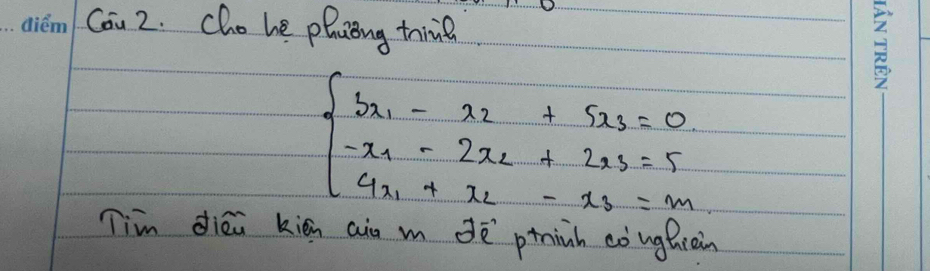 ... điểm
Câu 2. Cho hệ phương trình
3x₁ - x₂ + 5x₃ = 0.
-x₁ - 2x₂ + 2x₃ = 5
4x₁ + x₂ - x₃ = m.
Tìm điều kiện của m để ptrình có nghiệm
ẦN TRÊN